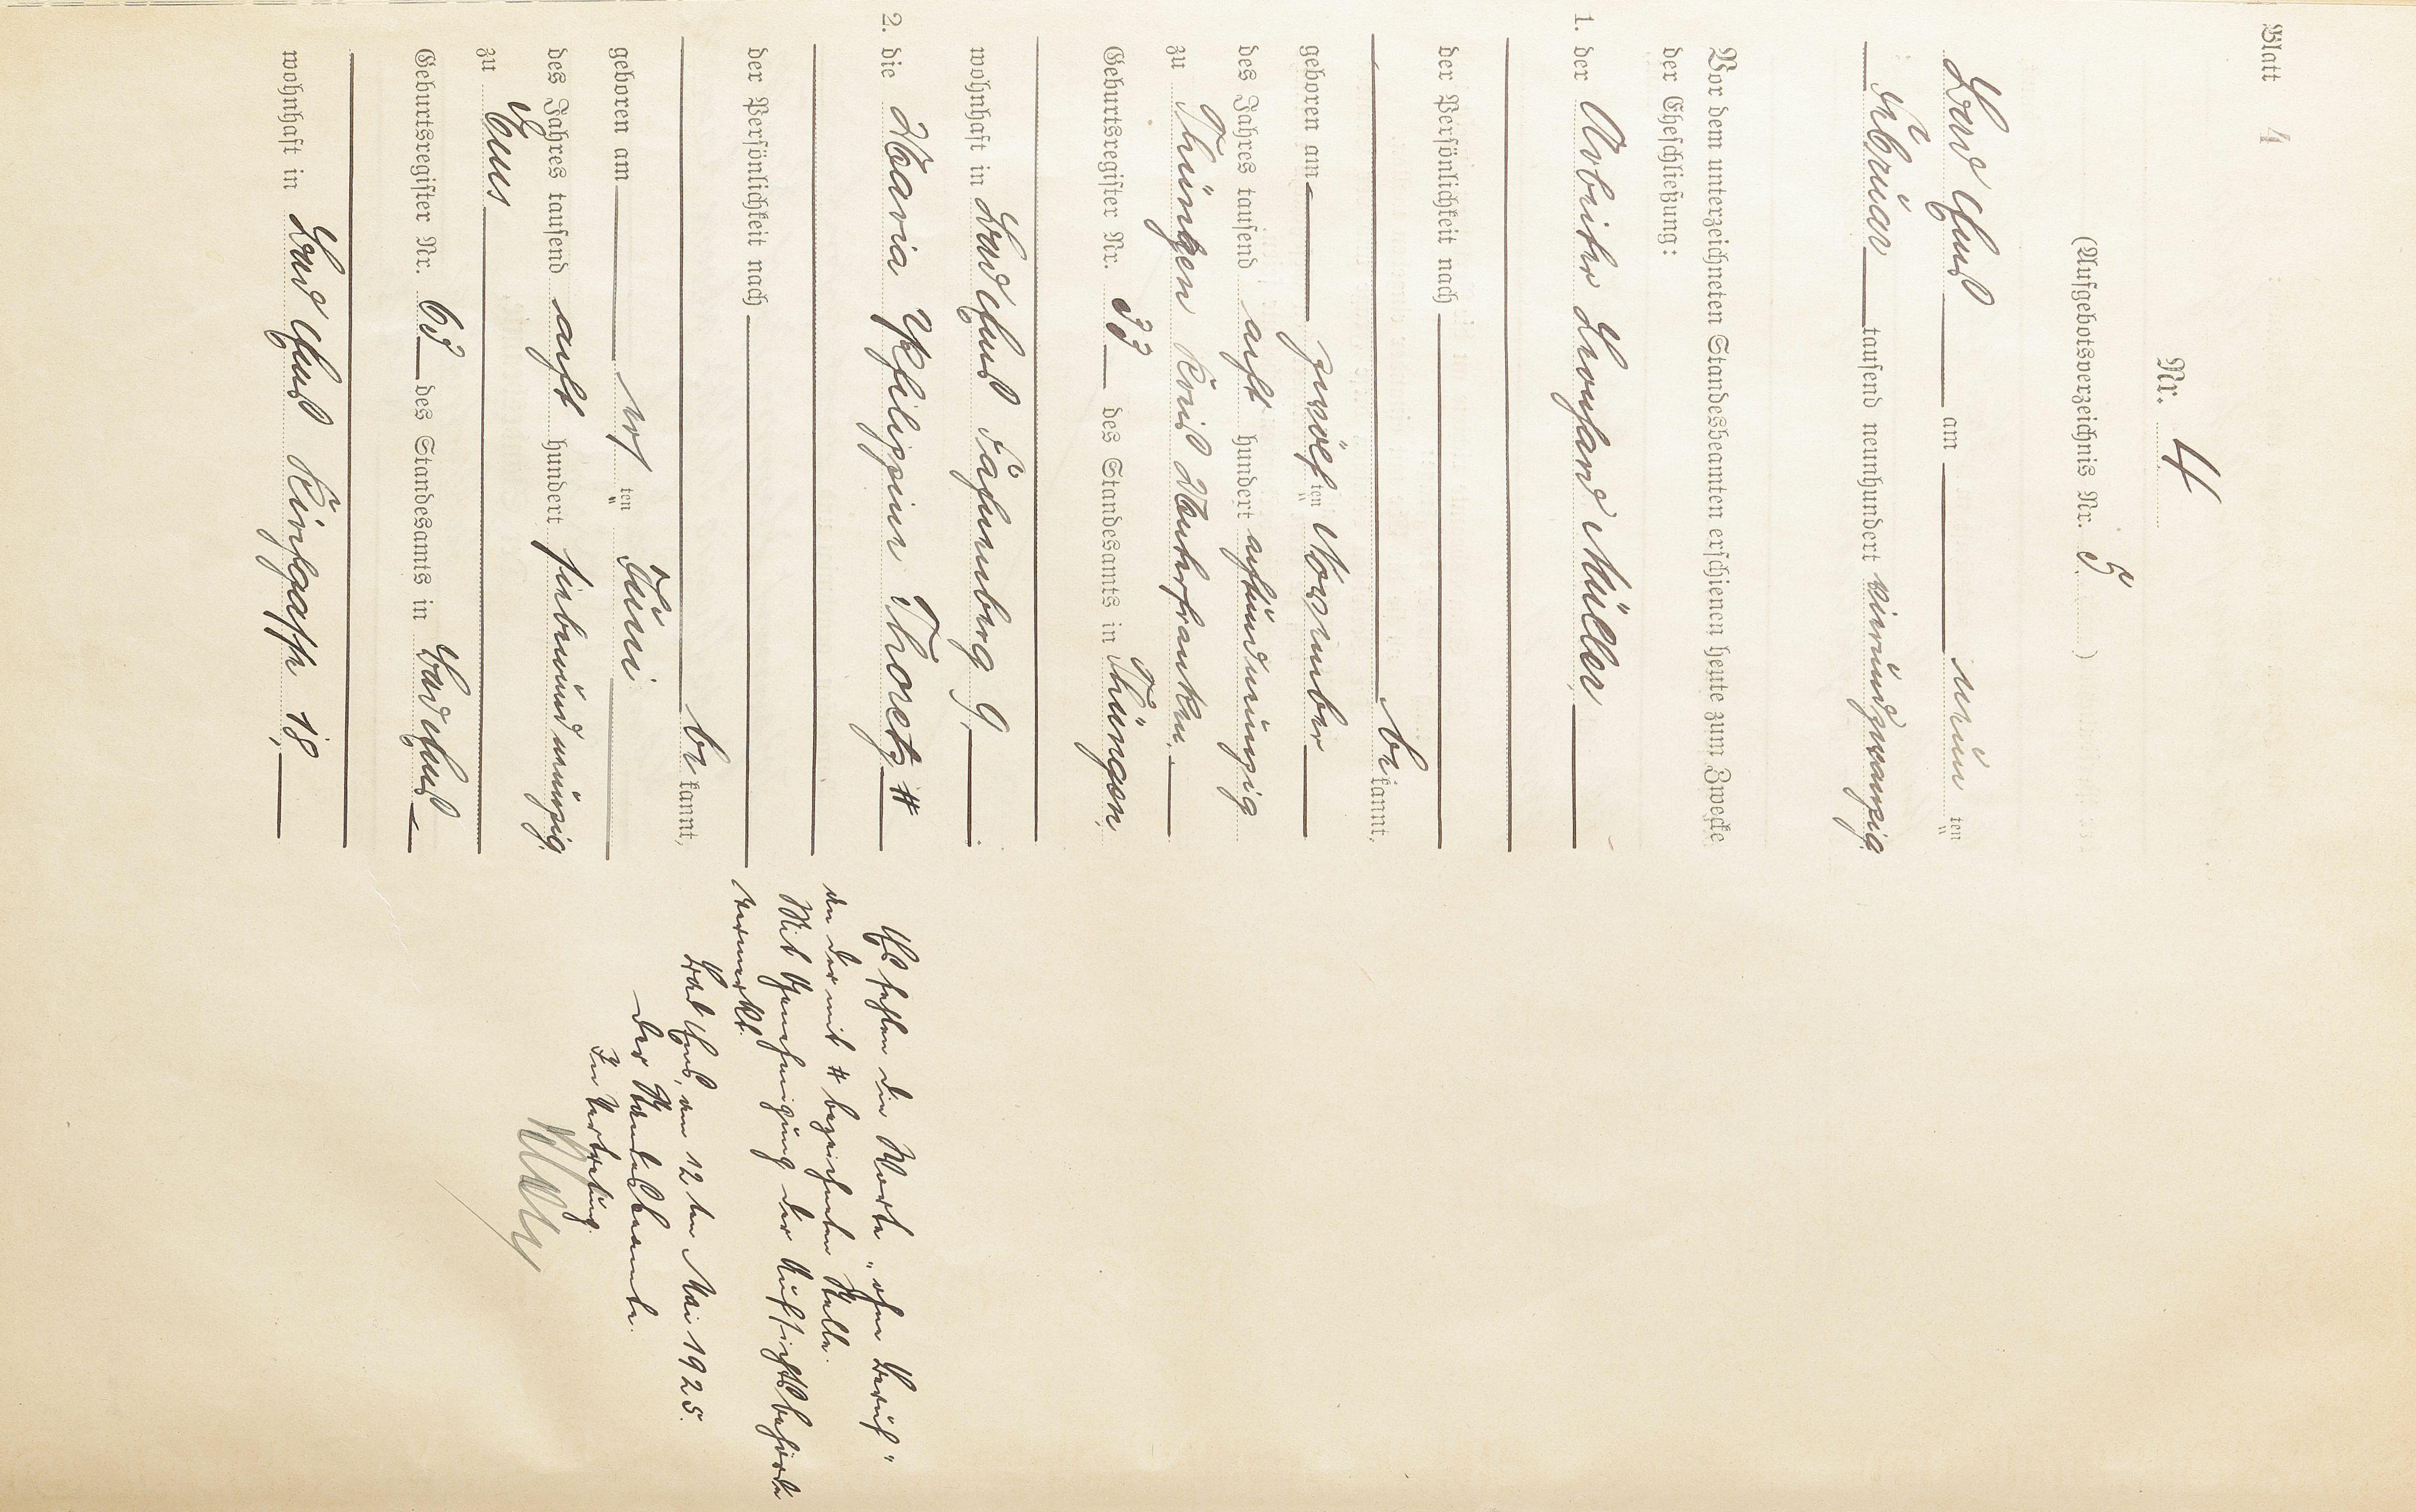 Blatt 4
Nr. 4
(Aufgebotsverzeichnis Nr. 5 )
Bad Ems am neun ten
Februar tausend neunhundert vierundzwanzig
Vor dem unterzeichneten Standesbeamten erschienen heute zum Zwecke
der Eheschließung:
1. der Arbeiter Leonhard Müller
der Persönlichkeit nach
be kannt,
geboren am zwölf ten November
des Jahres tausend acht hundert achtundneunzig
zu Thüngen Kreis Unterfranken,
Geburtsregister Nr. 33 des Standesamts in Thüngen,
wohnhaft in Bad Ems
2. die Maria Philippine Thoretz #
der Persönlichkeit nach
be kannt,
geboren am ten Juni
des Jahres tausend acht hundert siebenundneunzig
zu Ems
Geburtsregister Nr. 63 des Standesamts in Bad Ems
wohnhaft in Bad Ems Kirchgasse 18,
Es fehlen die Worte „ohne Beruf"
an der mit # bezeichneten Stelle.
Mit Genehmigung der Aufsichtsbehörde
vermerkt.
Bad Ems, am 12ten Mai 1925.
Der Standesbeamte.
In Vertretung.